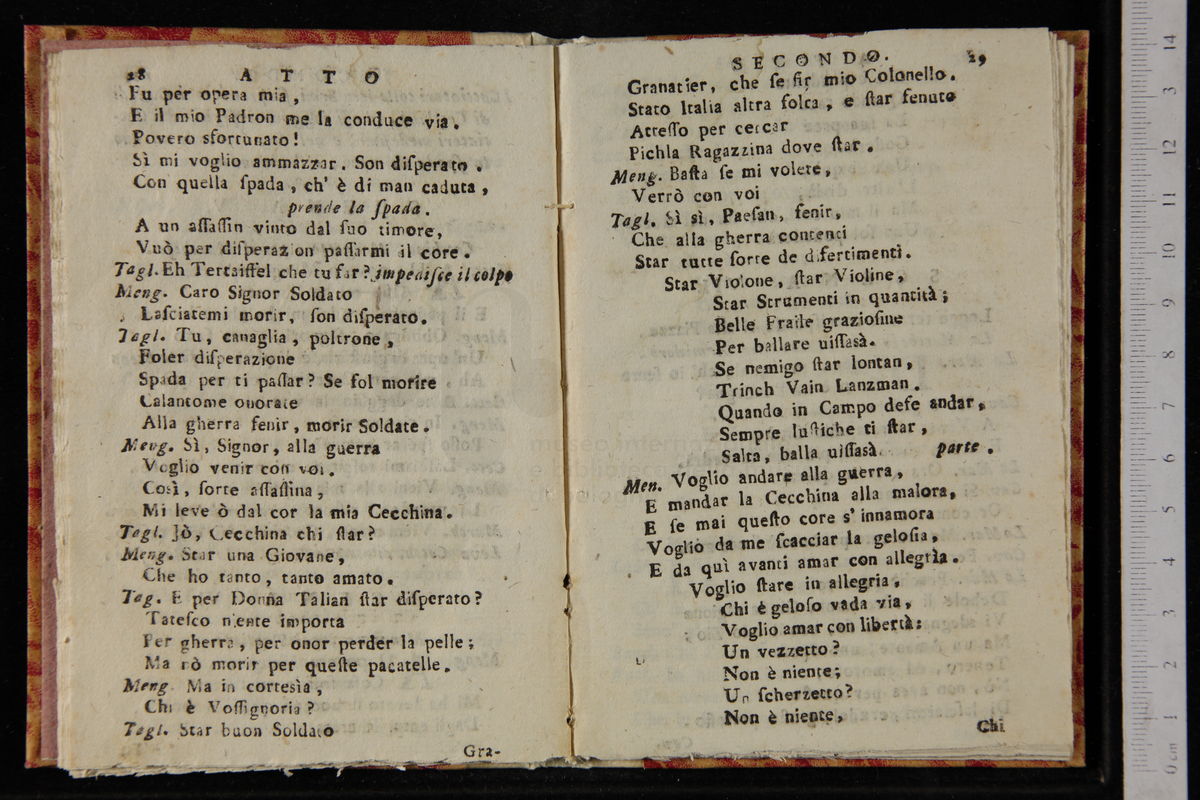 28 ATTO
Fu per opera mia,
E il mio Padron me la conduce via.
Povero sfortunato!
Sì mi voglio ammazzar. Son diſperato.
Con quella ſpada, ch' è di man caduta,
prende la ſpada.
A un aſſaſſin vinto dal ſuo timore,
Vuò per diſperazion paſſarmi il core.
Tagl. Eh Tertaiffel che tu far? impediſce il colpo
Meng. Caro Signor Soldato
Laſciatemi morir, ſon diſperato.
Tagl. Tu, canaglia, poltrone,
Foler diſperazione
Spada per ti paſſar? Se fol morire
Calantome onorate
Alla gherra fenir, morir Soldate.
Meng. Sì, Signor, alla guerra
Voglio venir con voi.
Così, ſorte aſſaſſina,
Mi leve ò dal cor la mia Cecchina.
Tagl. Jò, Cecchina chi ſtar?
Meng. Star una Giovane,
Che ho tanto, tanto amato.
Tag. E per Donna Talian ſtar diſperato?
Tateſco niente importa
Per gherra, per onor perder la pelle;
Ma nò morir per queſte pacatelle.
Meng. Ma in cortesìa,
Chi è Voſſignoria?
Tagl. Star buon Soldato
Gra-
SECONDO. 29
Granatier, che ſe fir mio Colonello.
Stato Italia altra folta, e ſtar fenuto
Atteſſo per cercar
Pichla Ragazzina dove ſtar.
Meng. Baſta ſe mi volete,
Verrò con voi
Tagl. Sì sì, Paeſan, fenir,
Che alla gherra contenti
Star tutte ſorte de difertimenti.
Star Violone, ſtar Violine,
Star Strumenti in quantità;
Belle Fraile grazioſine
Per ballare uiſſasà.
Se nemigo ſtar lontan,
Trinch Vain Lanzman.
Quando in Campo defe andar,
Sempre luſtiche ti ſtar,
Salta, balla uiſſasà. parte.
Men. Voglio andare alla guerra,
E mandar la Cecchina alla malora,
E ſe mai queſto core s' innamora
Voglio da me ſcacciar la geloſia,
E da quì avanti amar con allegrìa.
Voglio ſtare in allegria,
Chi è geloſo vada via,
Voglio amar con libertà:
Un vezzetto?
Non è niente;
Un ſcherzetto?
Non è niente,
Chi